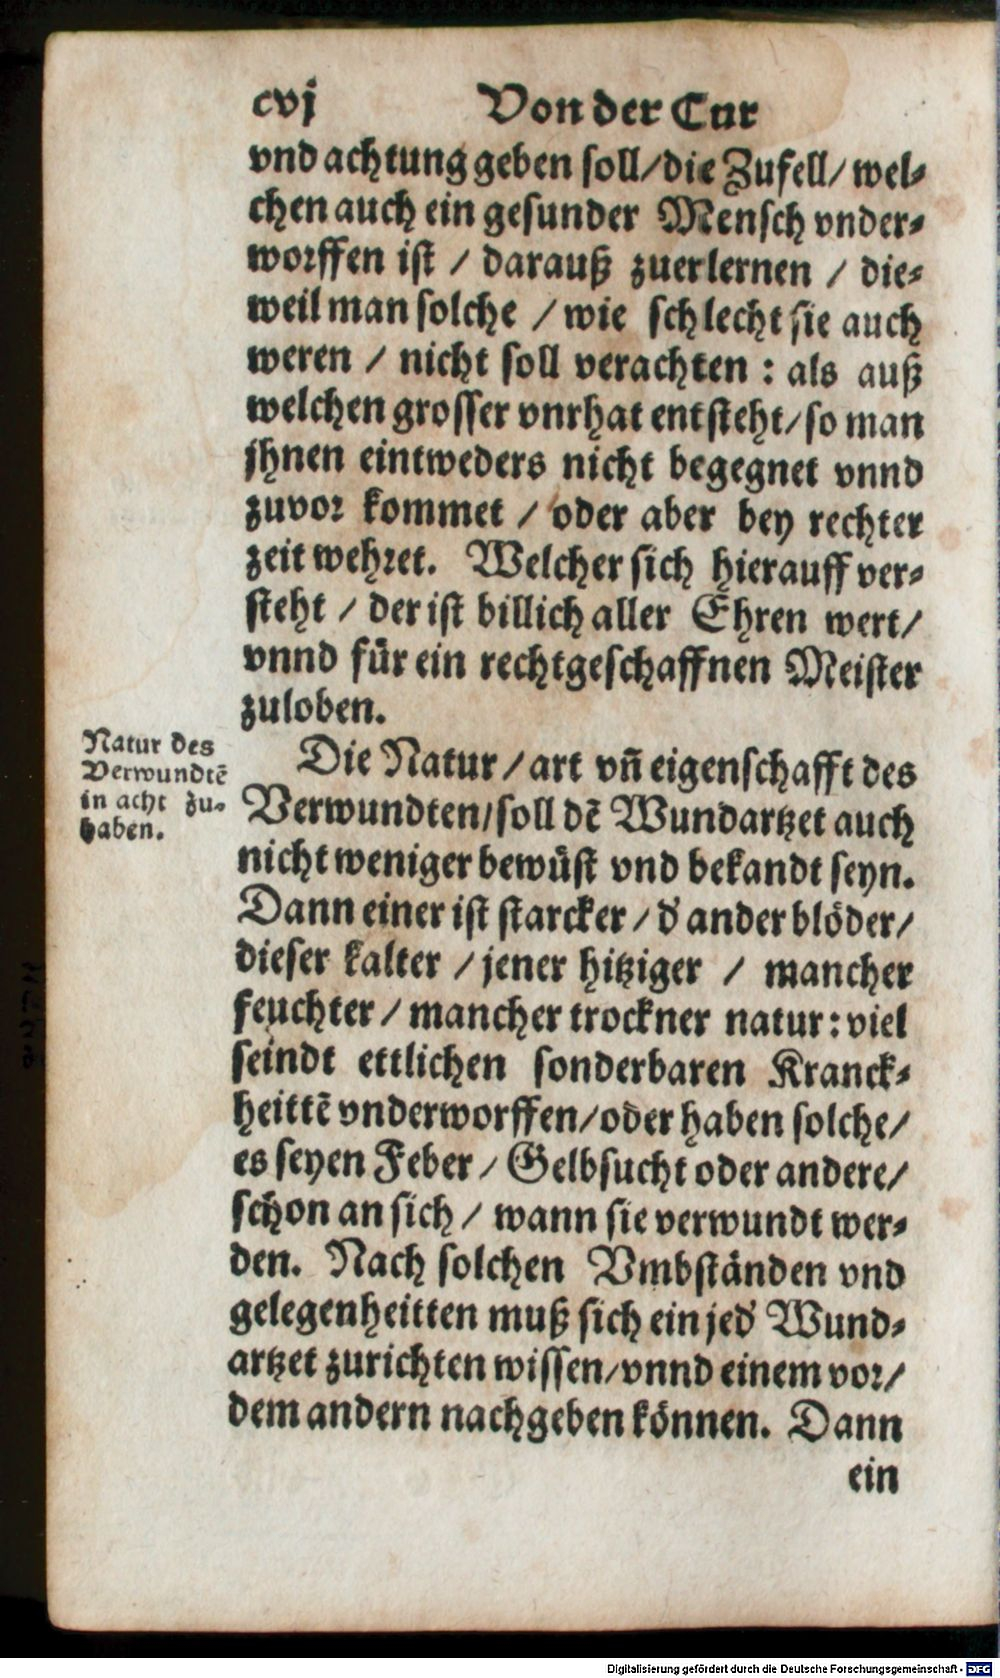 cvj Von der Cur
vnd achtung geben soll/die Zufell/ wel⸗
chen auch ein gesunder Mensch vnder⸗
worffen ist / darauß zuerlernen / die⸗
weil man solche / wie schlecht sie auch
weren / nicht soll verachten : als auß
welchen grosser vnrhat entsteht/so man
jhnen eintweders nicht begegnet vnnd
zuvor kommet / oder aber bey rechter
zeit wehret. Welcher sich hierauff ver⸗
steht / der ist billich aller Ehren wert/
vnnd für ein rechtgeschaffnen Meister
zuloben.
Natur des
Verwundtē
in acht zu⸗
haben.
Die Natur / art vñ eigenschafft des
Verwundten/soll dē Wundartzet auch
nicht weniger bewüst vnd bekandt seyn.
Dann einer ist starcker / d' ander blöder/
dieser kalter / jener hitziger / mancher
feuchter / mancher trockner natur: viel
seindt ettlichen sonderbaren Kranck⸗
heittē vnderworffen/oder haben solche/
es seyen Feber / Gelbsucht oder andere/
schon an sich / wann sie verwundt wer⸗
den. Nach solchen Vmbständen vnd
gelegenheitten muß sich ein jed' Wund⸗
artzet zurichten wissen/vnnd einem vor/
dem andern nachgeben können. Dann
ein
Digitalisierung gefördert durch die Deutsche Forschungsgemeinschaft - DFG